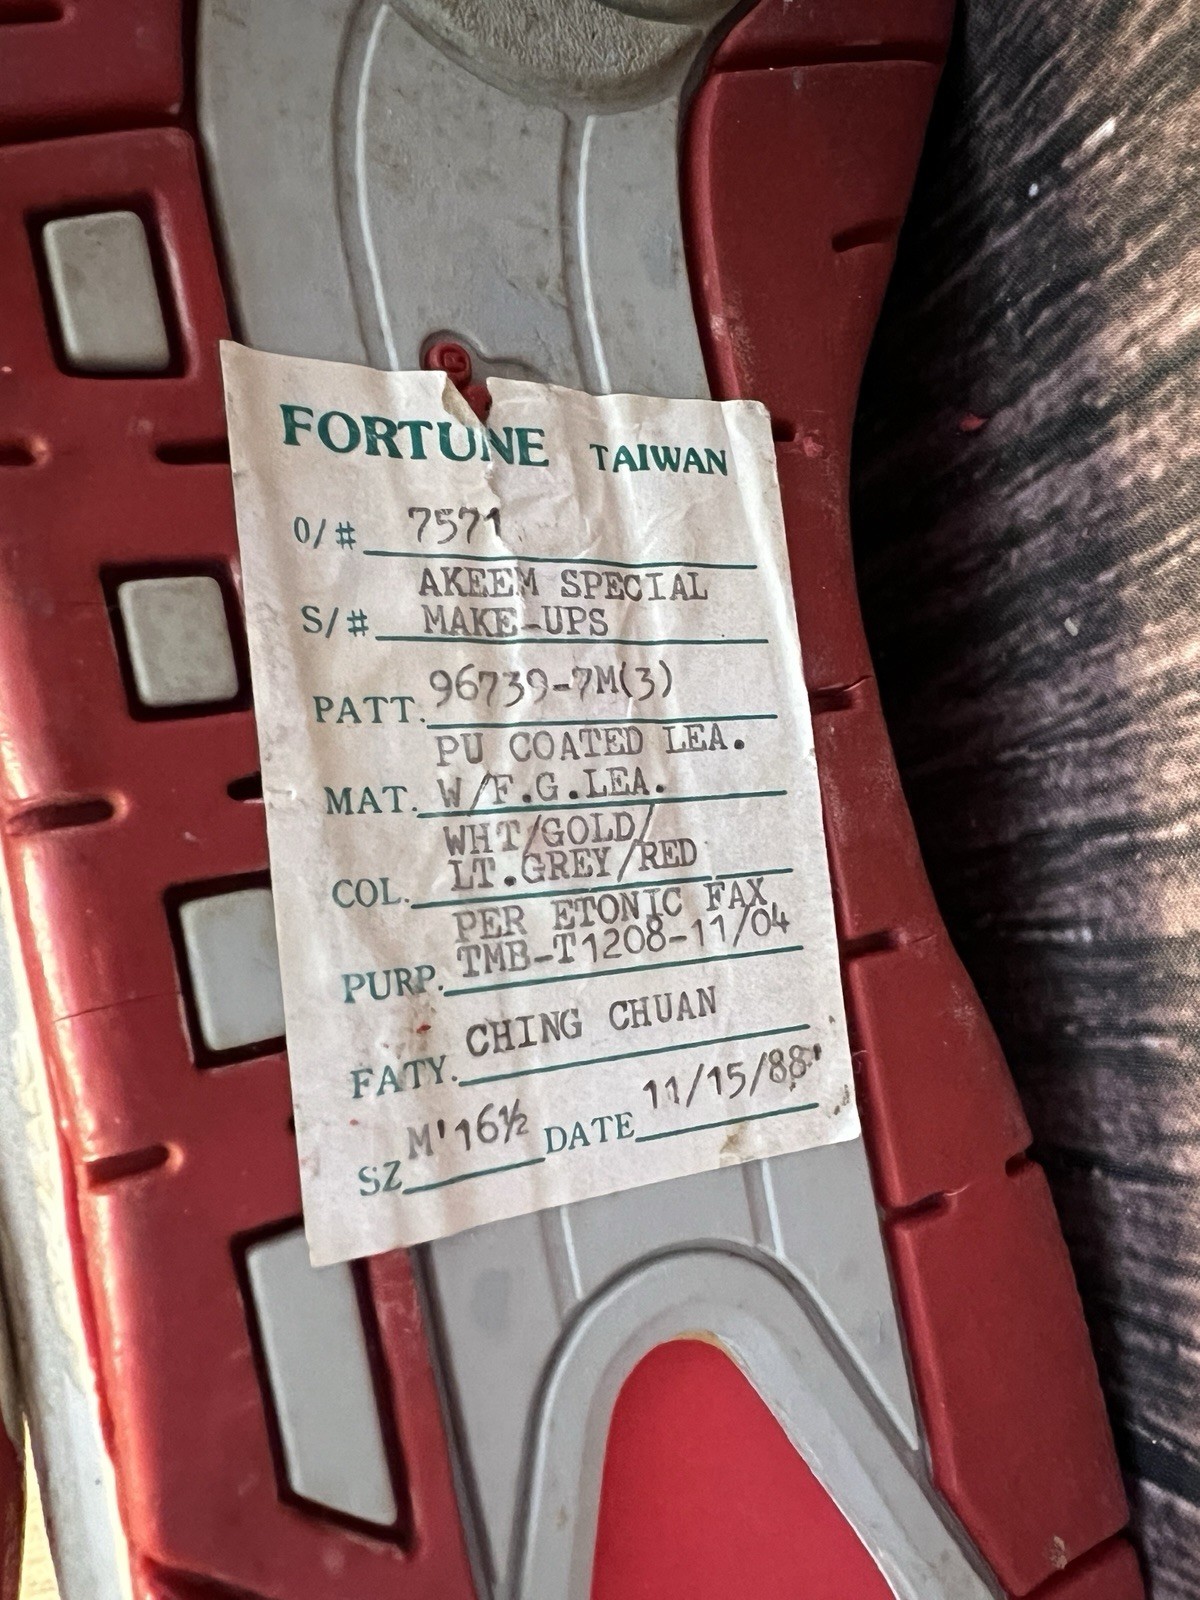 FORTUNE TAIWAN
O/# 7571
AKEEM SPECIAL
S/# MAKE-UPS
PATT. 96739-7M(3)
PU COATED LEA.
MAT. W/F.G.LEA.
WHT/GOLD/
COL. LT.GREY/RED
PER ETONIC FAX
PURP. TMB-T1208-11/04
FATY. CHING CHUAN
SZ M'16½ DATE 11/15/88'